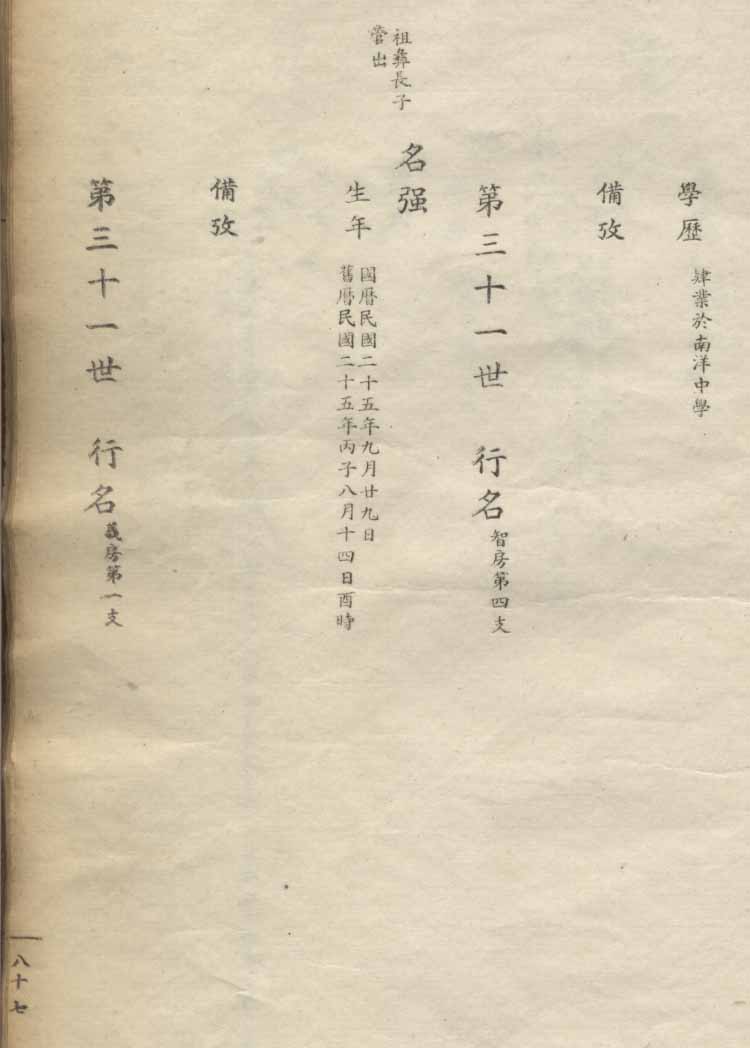 學歷
肄業於南洋中學
備攷
第三十一世 行名
智房第四支
祖彝長子
營出
名强
生年
國曆民國二十五年九月廿九日
舊曆民國二十五年丙子八月十四日酉時
備攷
第三十一世 行名
義房第一支
八十七